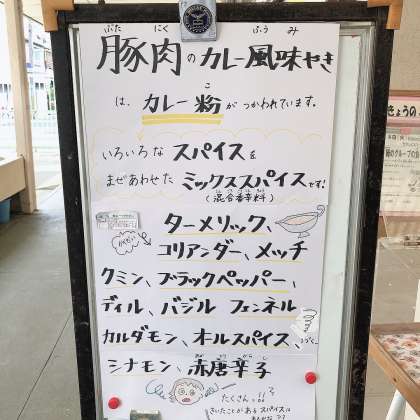 豚肉のカレー風味やき
は、カレー粉がつかわれています。
いろいろなスパイスを
まぜあわせたミックススパイスです!
(混合香辛料)
ターメリック、
コリアンダー、メッチ
クミン、ブラックペッパー、
ディル、バジル フェンネル
カルダモン、オールスパイス、
シナモン、赤唐辛子
たくさん!!
きいたことがあるスパイスは
きょうの